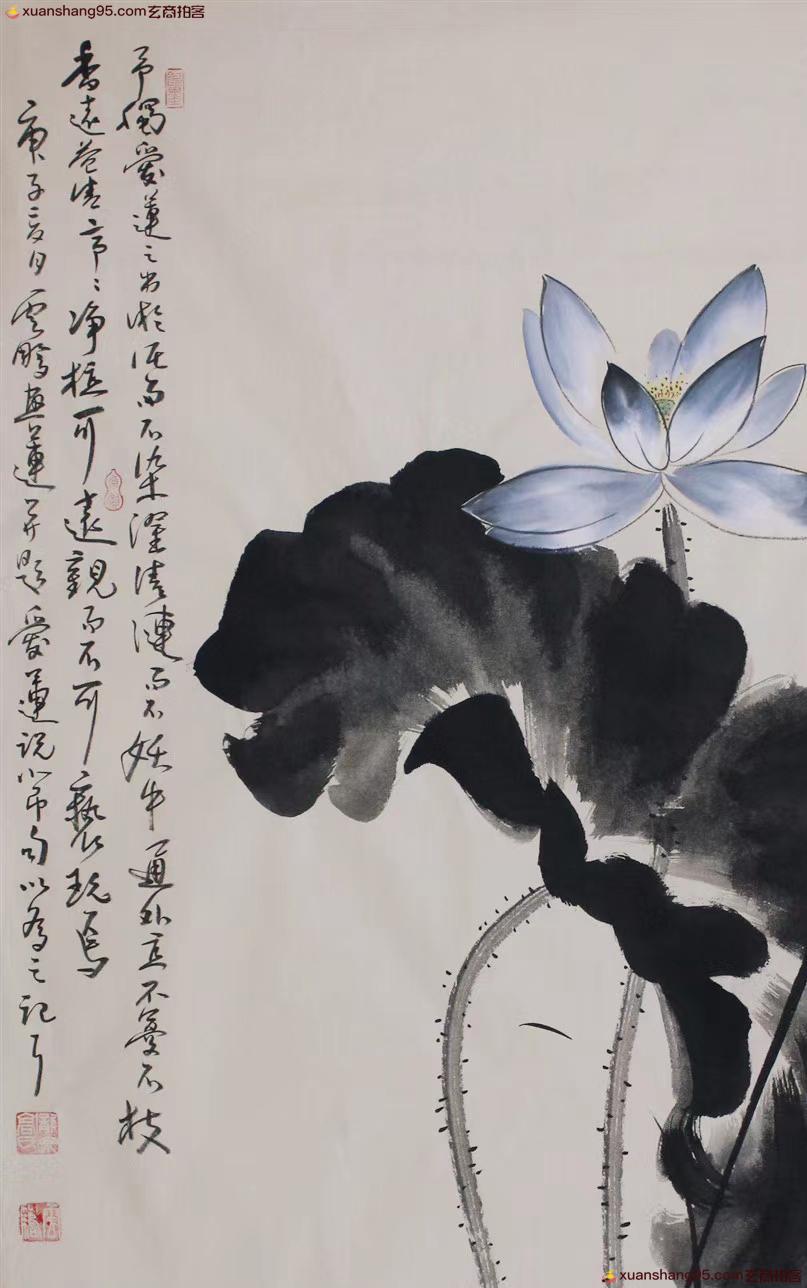 xuanshang95.com玄商拍客
予獨愛蓮之出淤泥而不染濯清漣而不妖中通外直不蔓不枝
香遠益清亭〻淨植可遠觀而不可褻玩焉
庚子夏日雲鵬畫蓮并題愛蓮說小節句以為之記耳
xuanshang95.com玄商拍客